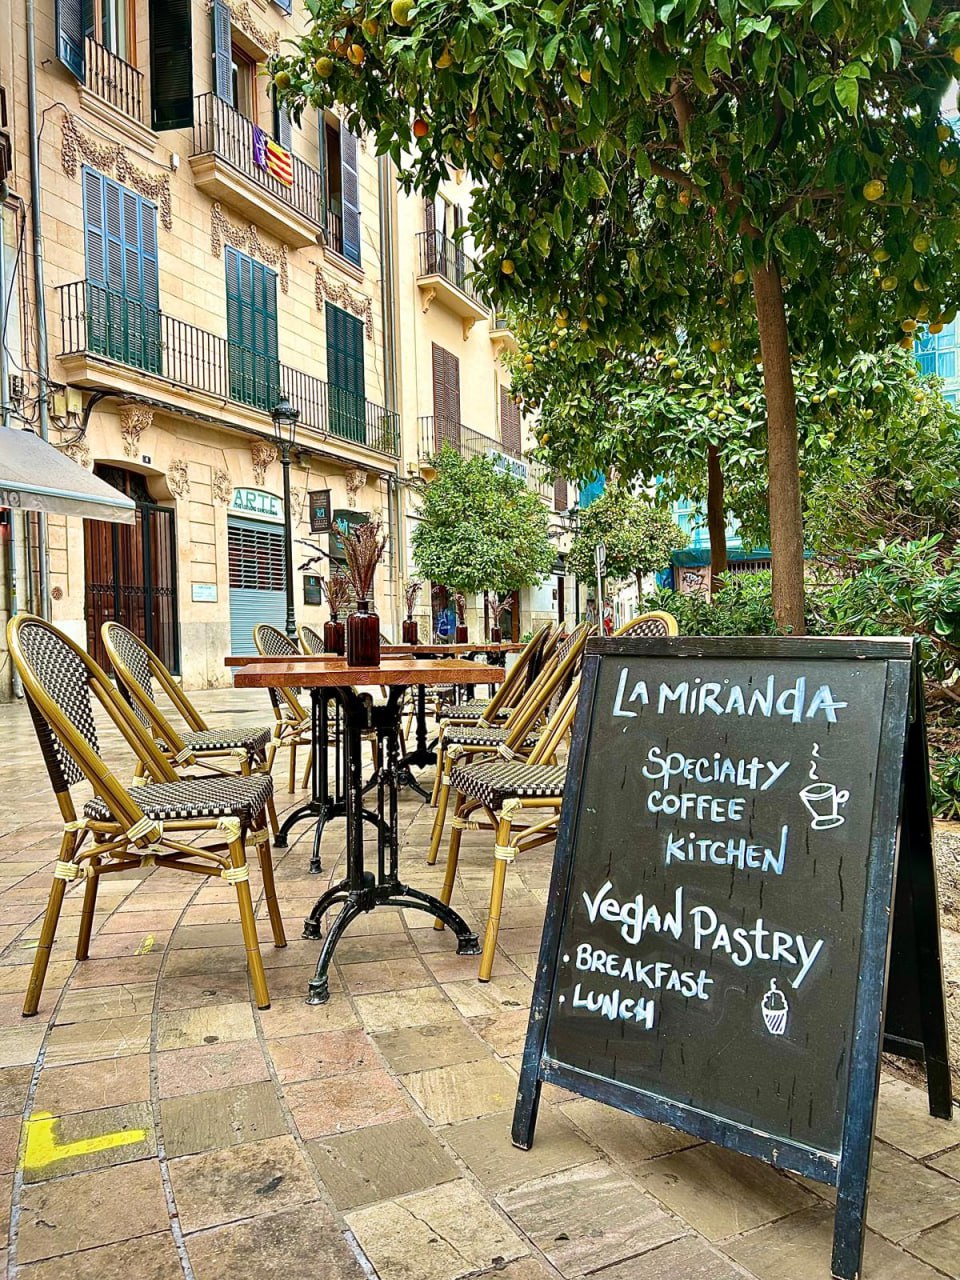 ARTE
LA MiRANdA
SPECiALTY
COFFEE
KiTCHEN
VegAN PASTRY
• BREAKFAST
• LUNCH